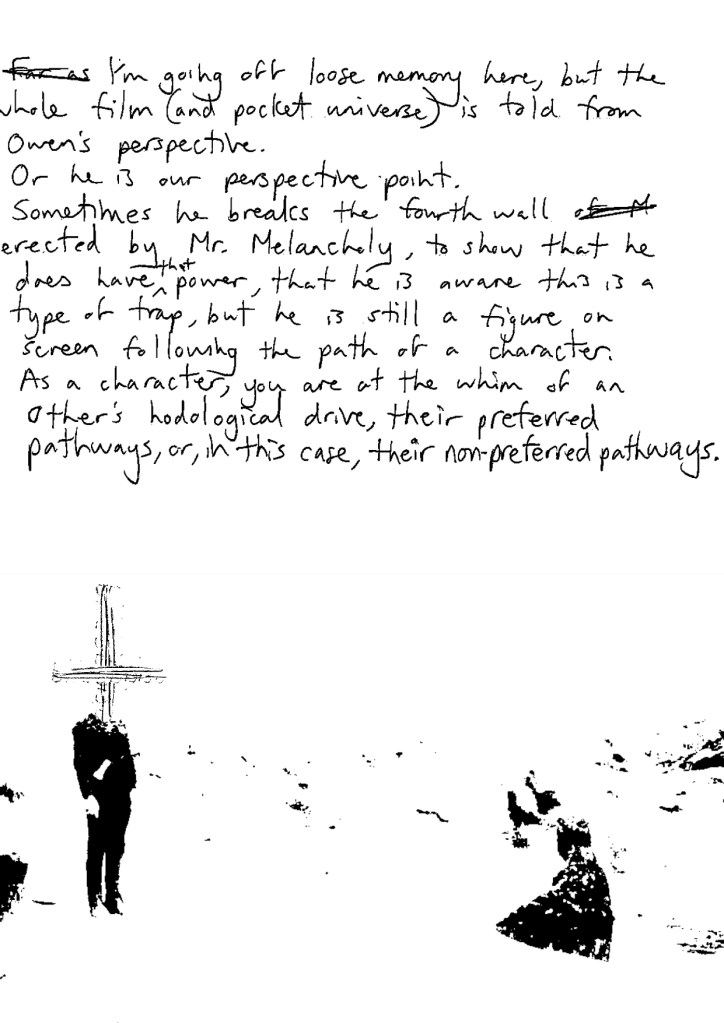 Far as I'm going off loose memory here, but the
whole film (and pocket universe) is told from
Owen's perspective.
Or he is our perspective point.
Sometimes he breaks the fourth wall of M
erected by Mr. Melancholy, to show that he
does have that power, that he is aware this is a
type of trap, but he is still a figure on
screen following the path of a character.
As a character, you are at the whim of an
Other's hodological drive, their preferred
pathways, or, in this case, their non-preferred pathways.